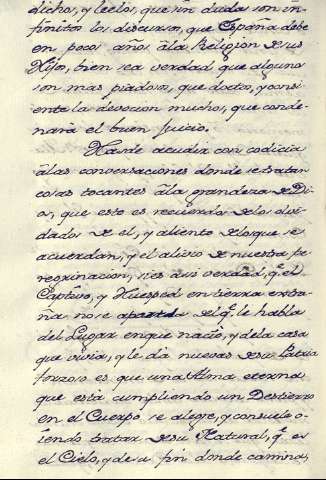 dichos, y leelos, que sin duda son in-
finitos los discursos, que España debe
en pocos años âla Religion de sus
Hijos, bien sea verdad que alguno
son mas piadosos, que doctos, y consi-
ente la devocion mucho, que conde-
nara el buen Juicio.
Hasde acudir con codicia
âlas conversaciones donde se tratan
cosas tocantes âla grandeza de Di-
os, que esto es recuerdo delos olvi-
dados de el, y aliento delos que se
acuerdan, y el alivio de nuestra pe
regrinacion, si es assi verdad, q.e el
Captivo, y Huesped en tierra extra-
ña no se aparta de q.n le habla
del Lugar en que nacio, y dela casa
que vivia, y le dà nuevas de su Patria
forzoso es que una Alma eterna
que está cumpliendo un Destierro
en el Cuerpo se alegre, y consuele o-
iendo tratar de su Natural, q.e es
el Cielo, y de su fin donde camina,